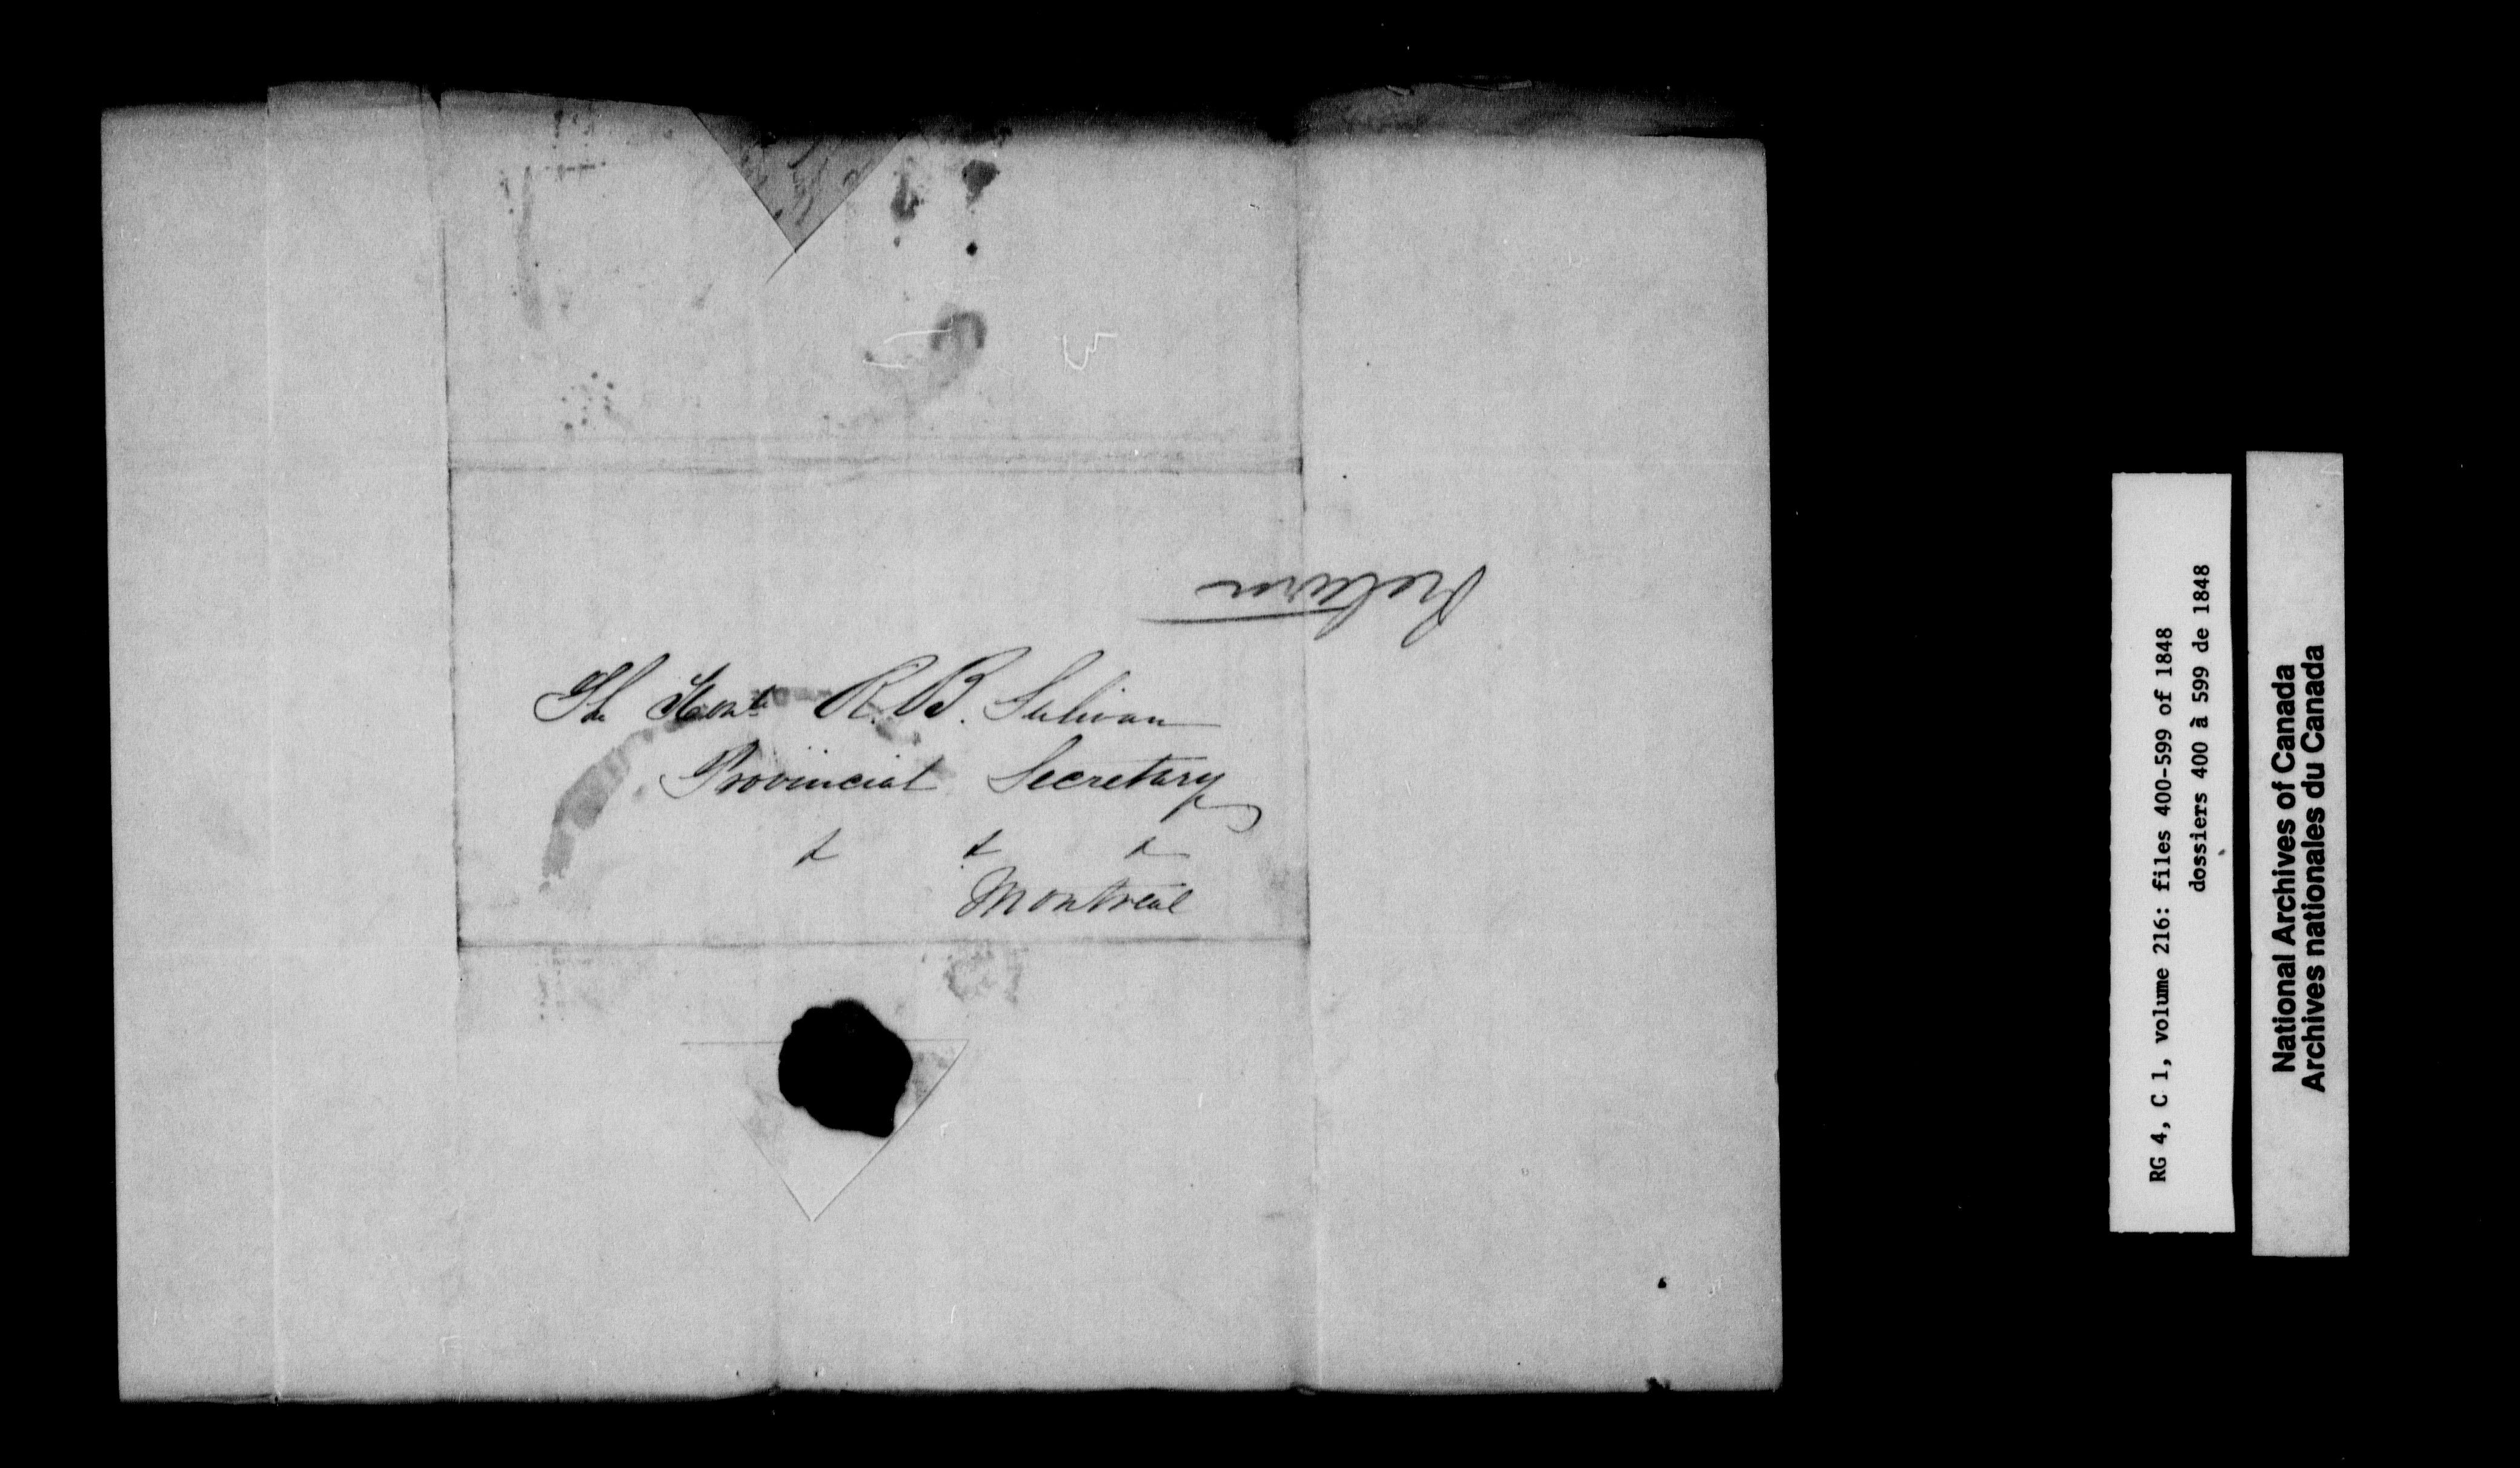 Return
The Honle R. B. Sulivan
Provincial Secretary
& & &
Montreal
RG 4, C 1, volume 216: files 400-599 of 1848
dossiers 400 à 599 de 1848
National Archives of Canada
Archives nationales du Canada